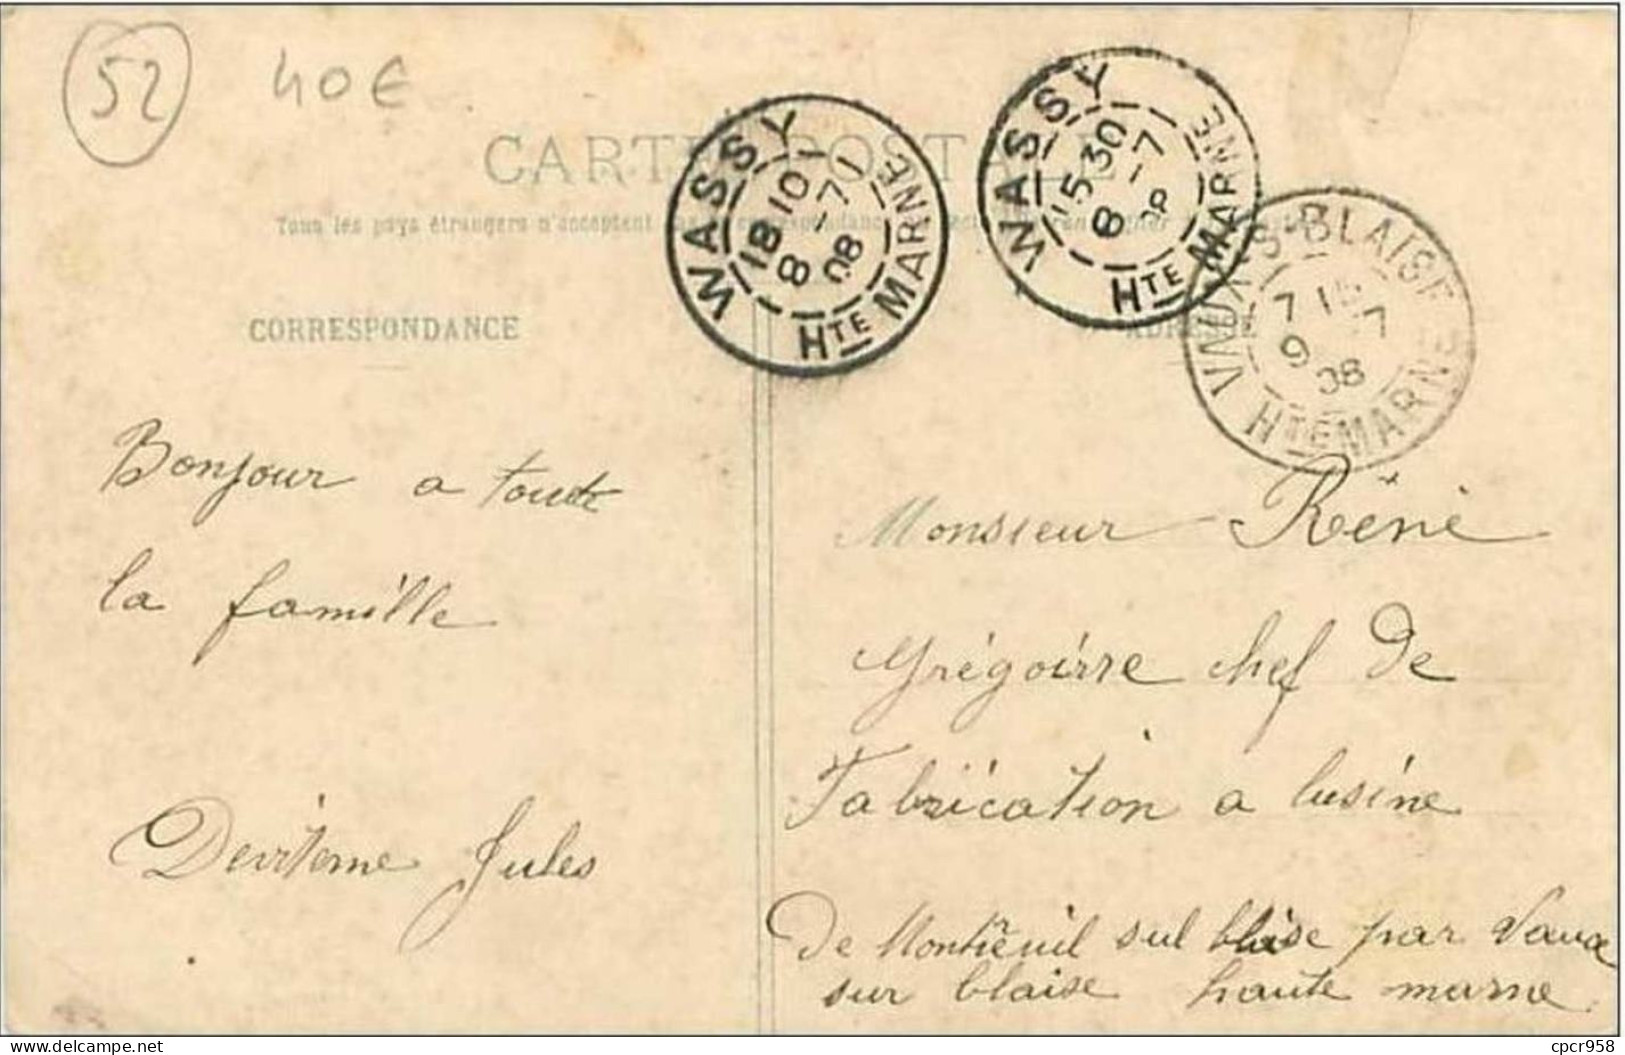 52 40€
CARTE POSTALE
Tous les pays étrangers n'acceptent pas la correspondance
CORRESPONDANCE
ADRESSE
WASSY
18 10
8 -7
08
Hte MARNE
WASSY
15 30
8 -7
08
Hte MARNE
VAUX-S-BLAISE
7 15
9 -7
08
Hte MARNE
Bonjour a toute
la famille
Deviterne Jules
Monsieur Réné
Grégoirre chef de
Fabrication a lusine
de Montreuil sul blaise par Vaux
sur blaise haute marne
delcampe.net
cpcr958